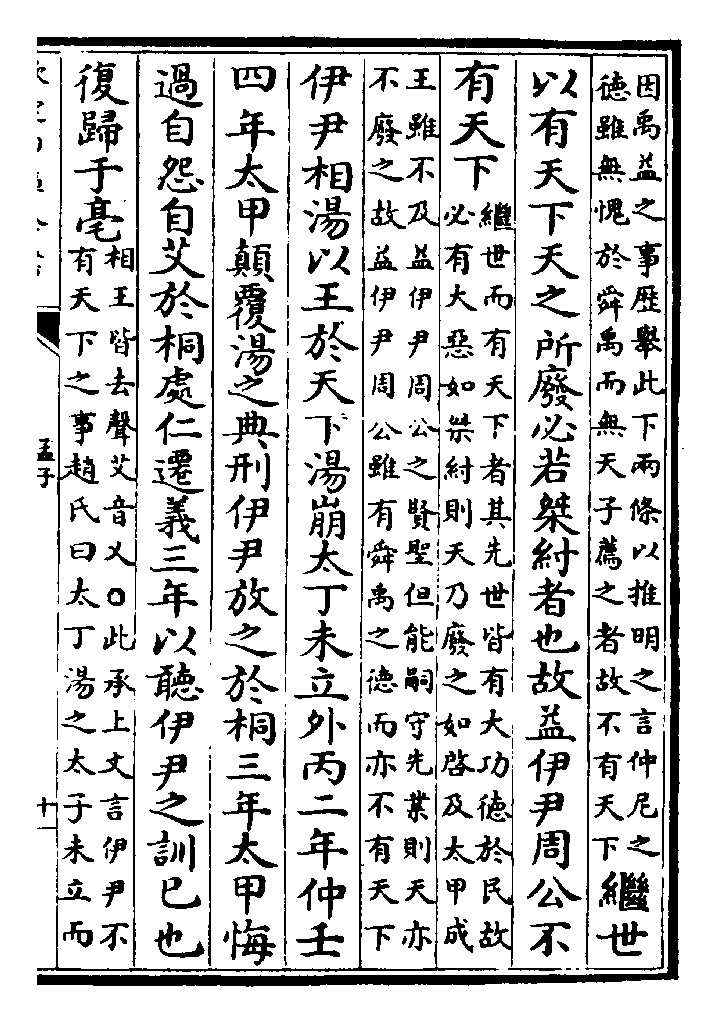 因禹益之事歴舉此下兩條以推明之言仲尼之
德雖無愧於舜禹而無天子薦之者故不有天下
繼世
以有天下天之所廢必若桀紂者也故益伊尹周公不
有天下
繼世而有天下者其先世皆有大功德於民故
必有大惡如桀紂則天乃廢之如啓及太甲成
王雖不及益伊尹周公之賢聖但能嗣守先業則天亦
不廢之故益伊尹周公雖有舜禹之德而亦不有天下
伊尹相湯以王於天下湯崩太丁未立外丙二年仲壬
四年太甲顛覆湯之典刑伊尹放之於桐三年太甲悔
過自怨自艾於桐處仁遷義三年以聽伊尹之訓已也
復歸于亳
相王皆去聲艾音乂○此承上文言伊尹不
有天下之事趙氏曰太丁湯之太子未立而
孟子
十